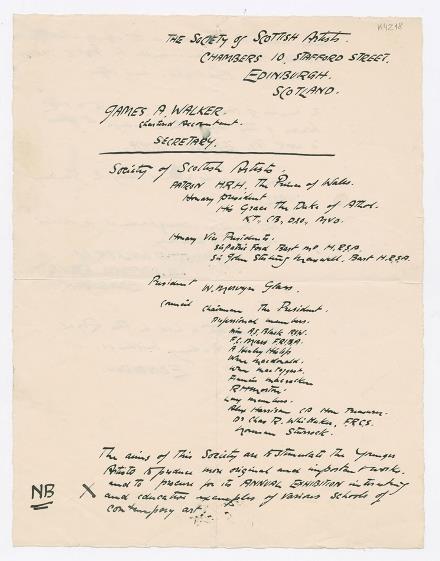 K4218
THE SOCIETY of SCOTTISH ARTISTS.
CHAMBERS 10, STAFFORD STREET,
EDINBURGH.
SCOTLAND.
JAMES A. WALKER.
Chartered Accountant.
SECRETARY.
Society of Scottish Artists.
PATRON H.R.H. The Prince of Wales.
Honary president
His Grace The Duke of Athol.
KT., CB, DSO., MVO.
Honary Vice Presidents.
Sir Patric Ford Bart MP H.R.S.A.
Sir John Stirling Maxwell. Bart H.R.S.A.
President W. Mervyn Glass.
Council Chairman The President.
Professional members.
Miss A.S. Black RSW.
F.C. Mears FRIBA.
A
Wm Macdonald.
Wm MacTaggart.
Francis
Lay members.
Alex Harrison CA Hon Treasurer.
Dr Chas R. Whittaker, F.R.C.S.
Norman
The aims of this Society are to stimulate the Younger
Artists to produce more original and important work.
and to procure for its ANNUAL EXHIBITION interesting
NB X and education examples of various schools of
contempory art.